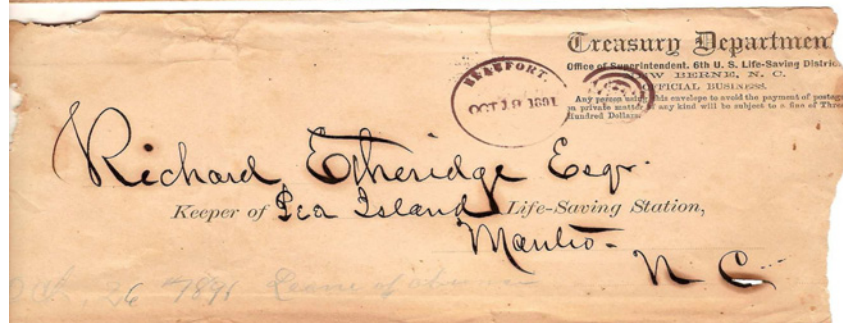 Treasury Departmen
Office of Superintendent, 6th U. S. Life-Saving Distric
NEW BERNE, N. C.
OFFICIAL BUSINESS.
Any person using this envelope to avoid the payment of postage
on private matter of any kind will be subject to a fine of Three
Hundred Dollars
BEAUFORT.
OCT 19 1891
Richard Etheridge Esqr.
Keeper of Pea Island Life-Saving Station,
Manteo -
N C
26 1891 Leave of absence